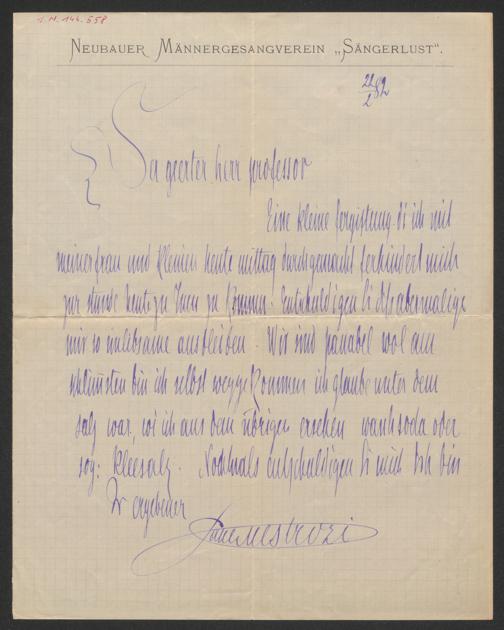 I.N. 144.558
NEUBAUER MÄNNERGESANGVEREIN „SÄNGERLUST“.
22/2 82
Ser geerter herr professor
Eine kleine fergiftung di ich mit
meiner frau und kleinen heute mittag durchgemacht ferhindert mich
zur stunde heute zu Inen zu kommen. Entschuldigen Si das abermalige
mir so unliebsame ausbleiben. Wir sind wol am
schlimsten bin ich selbst weggekommen ich glaube unter dem
salz war, wi ich aus dem übrigen ersehen waschsoda oder
sog: kleesalz. Nochmals entschuldigen Si mich Ich bin
Ir ergebener